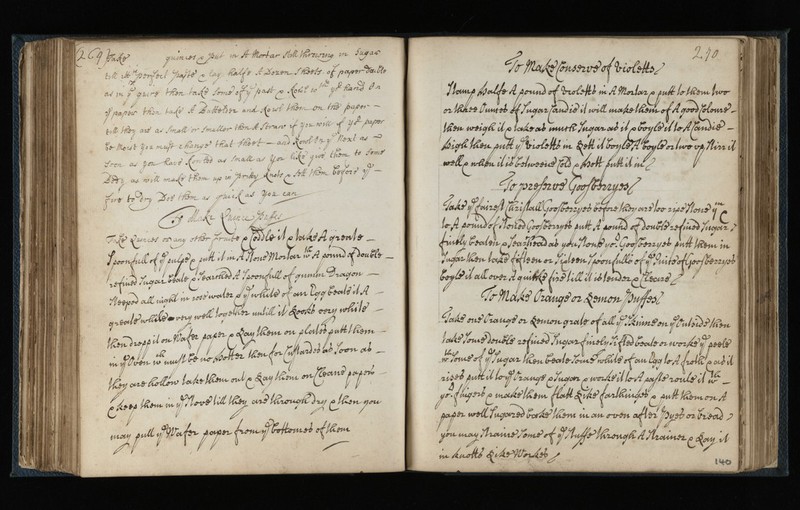 Take quinces & put in A Mortar still throwing in Sugar
till it is perfect paste & lay halfe A Dozen sheets of paper Double
as in yᵉ quire then take some of yᵉ past & Rowl wᵗʰ yʳ hand on
yᵉ paper then take A and Rowl them on the paper
till they are as small or smaller then A straw if you will if yᵉ paper
be Moist you must change that sheet and Rowl in yᵉ Next as
soon as you have Rowled as small as you like give them to some
Body as will make them up in pretty knots & sett them before yᵉ
fire to dry Doe them as quick as you can
To Make Quince Pufes
Take Quinces or any other fruite & Coddle it & take A greate
Spoonfull of yᵉ pulpe & putt it in A Stone Mortar wᵗʰ A pound of double
refined Sugar beate & Searched A Spoonfull of gumm Dragon
Steeped all night in rose water & yᵉ white of an Egg beate it A
greate while very well together untill it Lookes very white
then drop it on Wafer paper & Lay them on plates putt them
in yᵉ Oven wᶜʰ must be no hotter then for Custards as Soon as
they are hollow take them out & Lay them on Cleane papers
& keep them in yᵉ Stove till they are through dry & then you
may pull yᵉ Wafer paper from yᵉ bottomes of them
240
To Make Conserve of Violetts
Stamp halfe A pound of Violetts in A Mortar & putt to them two
or three Ounces of Sugar Candie it will make them of A good Coloure
then weigh it & take as much Sugar as it & boyle it to A Candie
high then putt yᵉ Violetts in Lett it boyle A boyle or two up Stirr it
well & when it is betweene Cold & hott putt it in
To preserve Goosberryes
Take yᵉ fairest Christall Goosberryes before they are too ripe Stone yᵐ
to A pound of Stoned Goosberryes putt A pound of Double refined Sugar
finely beaten & Searshed as you Stone yoʳ Goosberryes putt them in
Sugar then take fifteen or Sixteen Spoonfulls of yᵉ Juice of Goosberryes
boyle it all over A quicke fire till it is tender & Cleare
To Make Orange or Lemon Puffes
Take one Orange or Lemon grate of all yᵉ Skinne on yᵉ Outside then
take Some double refined Sugar finely Sifted beate or worke yᵉ peele
wᵗʰ Some of yᵉ Sugar then beate Some white of an Egg to A froth & as it
rises putt it to yᵉ Orange & Sugar & worke it to A paste roule it wᵗʰ
yoʳ fingers & make them flatt Like farthings & putt them on A
paper well Sugared bake them in an oven after Pyes or bread
you may Straine Some of yᵉ Stuffe through A Strainer & Lay it
in knotts Like Wormes
140